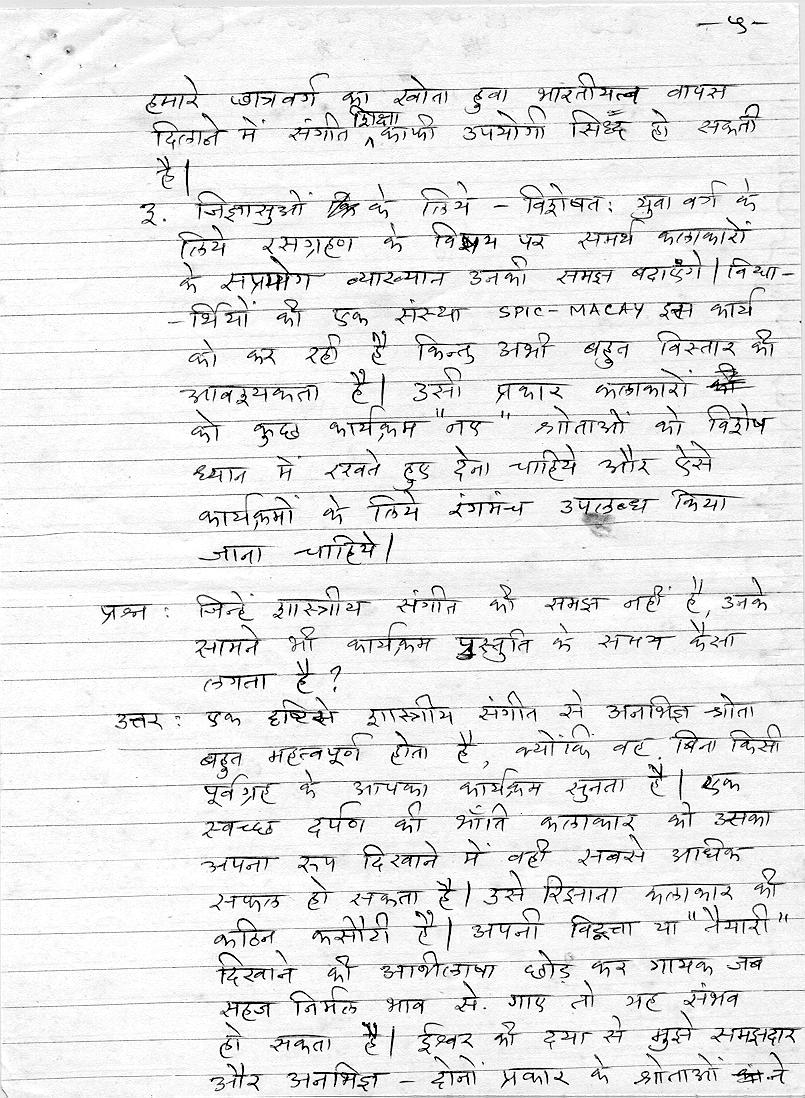 -५-
हमारे छात्रवर्ग का खोता हुवा भारतीयत्व वापस
दिलाने में संगीत शिक्षा काफी उपयोगी सिध्द हो सकती
है।
३. जिज्ञासुओं के लिये - विशेषत: युवा वर्ग के
लिये रसग्रहण के विषय पर समर्थ कलाकारों
के सप्रयोग व्याख्यान उनकी समझ बढाएंगे। विद्या-
-र्थियों की एक संस्था SPIC-MACAY इस कार्य
को कर रही है किन्तु अभी बहुत विस्तार की
आवश्यकता है। उसी प्रकार कलाकारों
को कुछ कार्यक्रम "नए" श्रोताओं को विशेष
ध्यान में रखते हुए देना चाहिये और ऐसे
कार्यक्रमों के लिये रंगमंच उपलब्ध किया
जाना चाहिये।
प्रश्न : जिन्हें शास्त्रीय संगीत की समझ नहीं है, उनके
सामने भी कार्यक्रम प्रस्तुति के समय कैसा
लगता है?
उत्तर : एक दृष्टिसे शास्त्रीय संगीत से अनभिज्ञ श्रोता
बहुत महत्वपूर्ण होता है, क्योंकि वह बिना किसी
पूर्वग्रह के आपका कार्यक्रम सुनता है। एक
स्वच्छ दर्पण की भाँति कलाकार को उसका
अपना रूप दिखाने में वही सबसे अधिक
सफल हो सकता है। उसे रिझाना कलाकार की
कठिन कसौटी है। अपनी विद्वत्ता या "तैयारी"
दिखाने की अभिलाषा छोड़ कर गायक जब
सहज निर्मल भाव से गाए तो यह संभव
हो सकता है। ईश्वर की दया से मुझे समझदार
और अनभिज्ञ - दोनों प्रकार के श्रोताओं ने